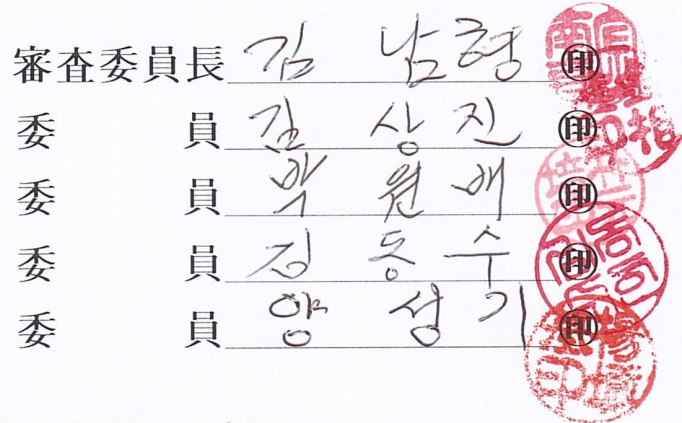 審査委員長 김 남 형 ㊞
委 員 김 상 진 ㊞
委 員 박 원 배 ㊞
委 員 김 동 수 ㊞
委 員 양 성 기 ㊞